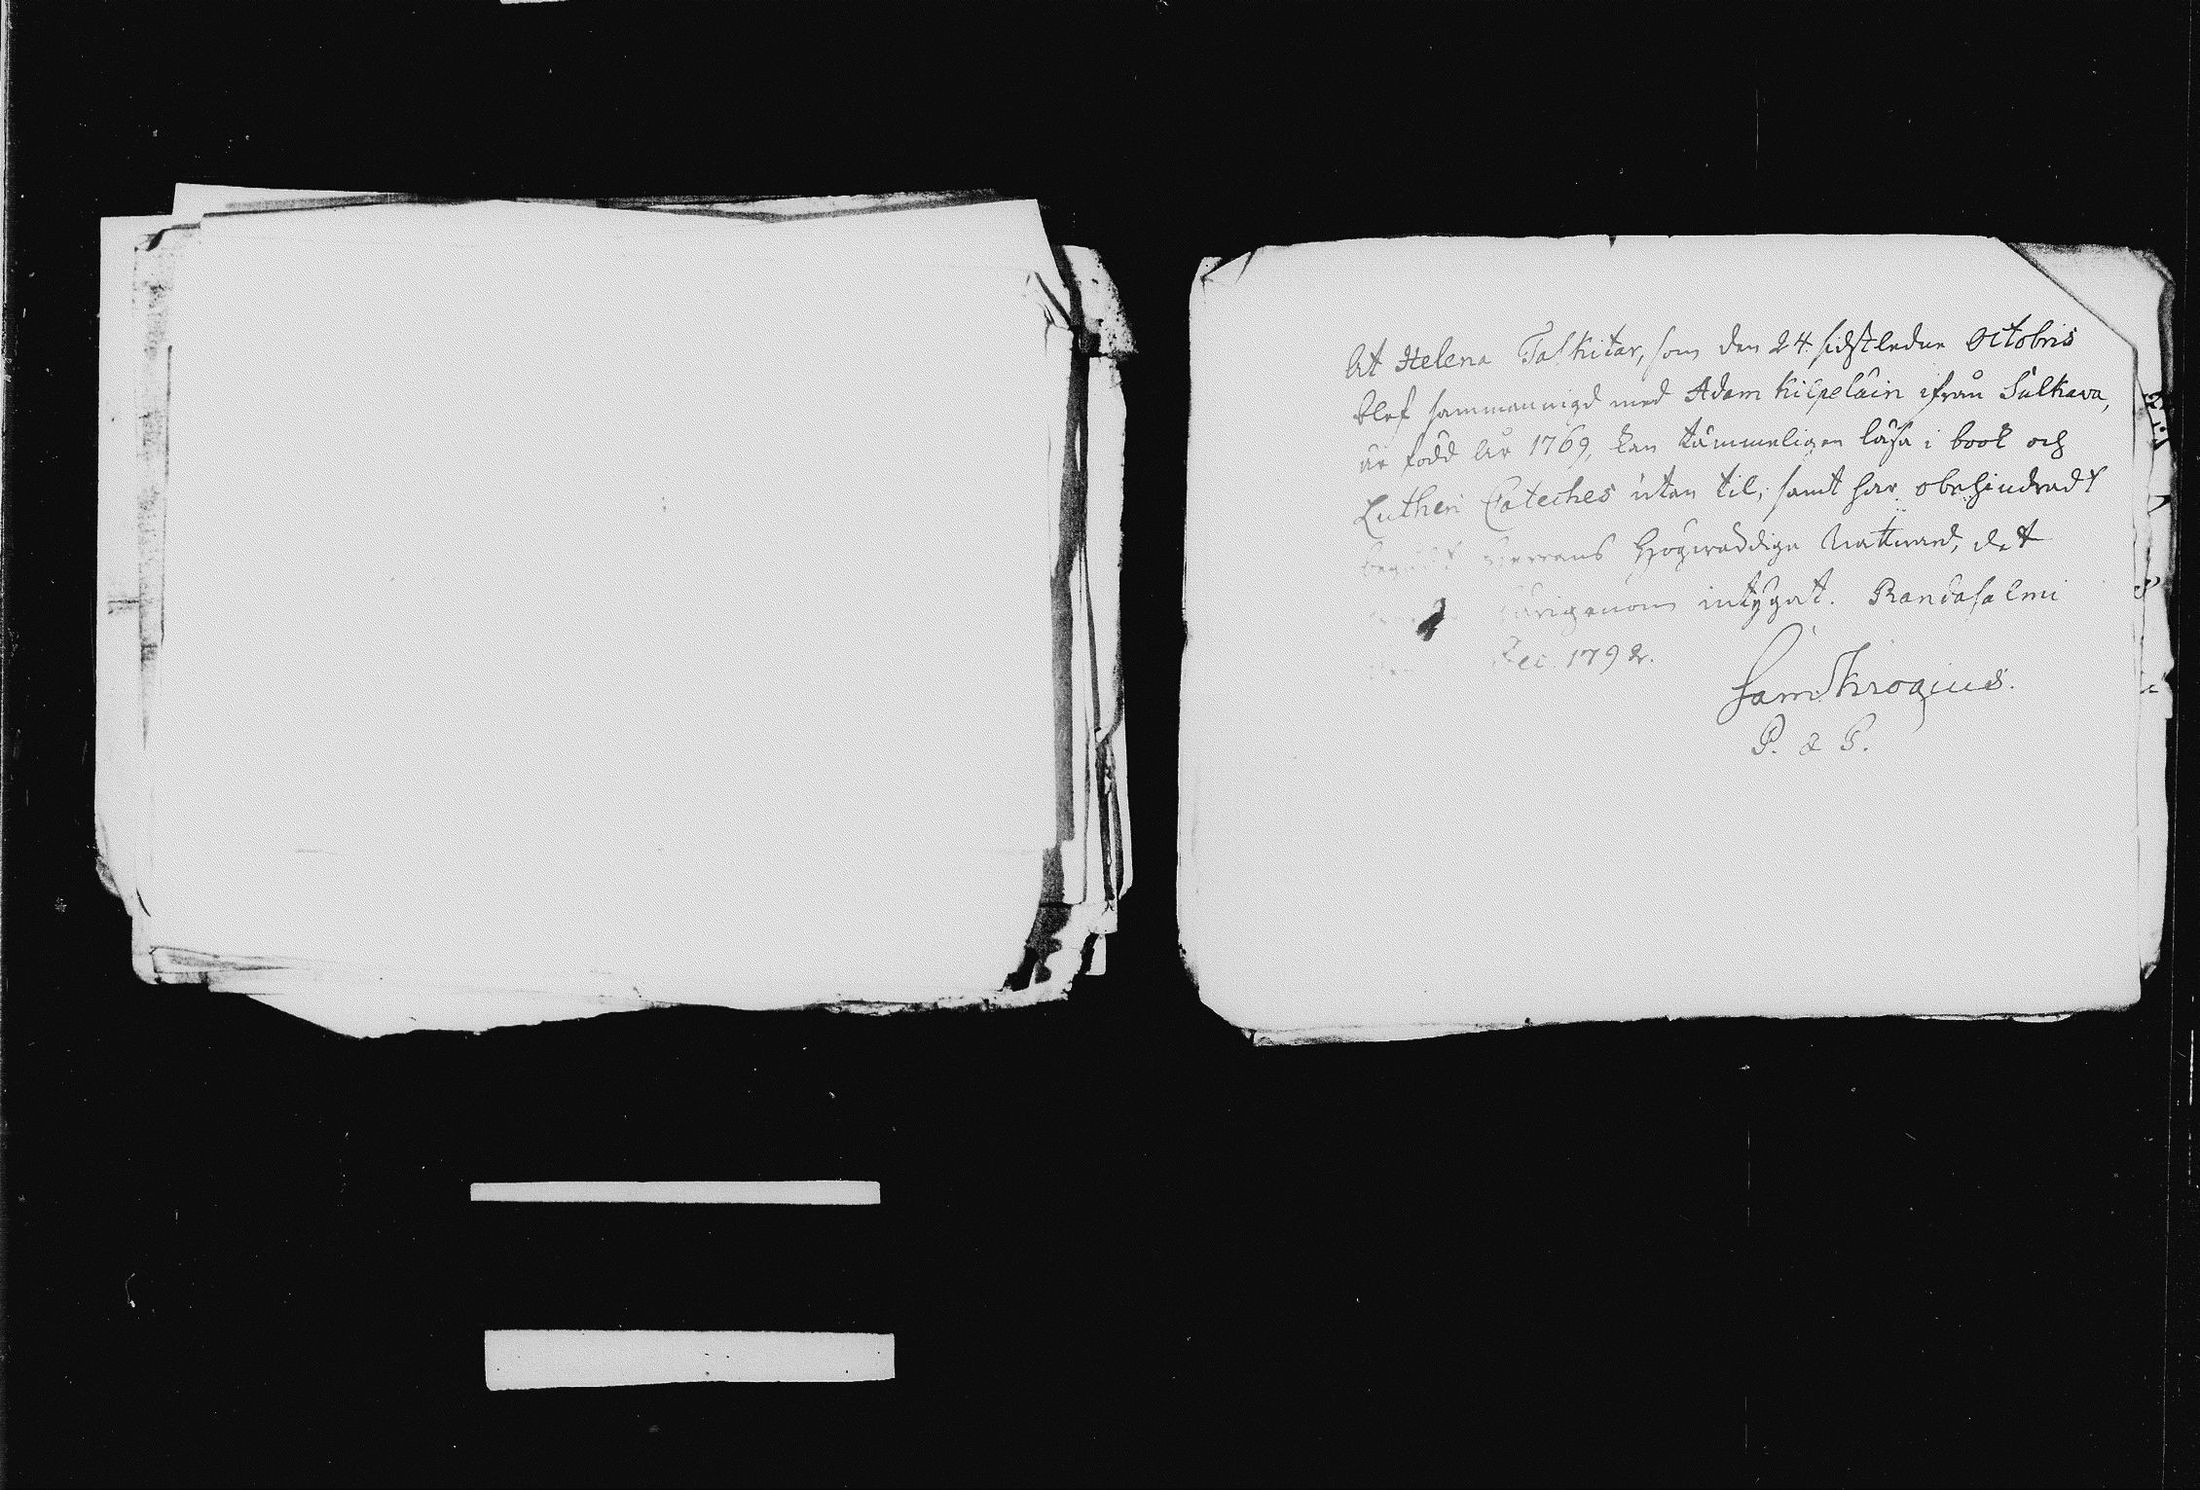 At Helena Taskitar, som den 24 sidstledne Octobris
blef sammanvigd med Adam Kilpeläin ifrån Sulkava,
är född år 1769, kan tämmeligen läsa i book och
Lutheri Cateches utan til, samt har obehindradt
begådt Herrans Högwärdiga Nattward, det
härigenom intygat. Randasalmi
Dec. 1792.
Sam Krogius.
P. & P.